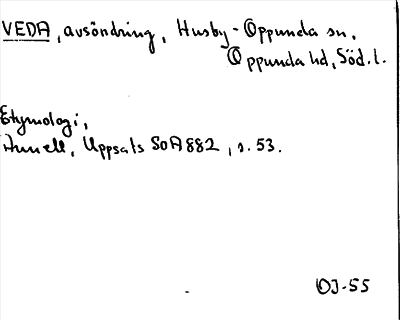 VEDA, avsöndring, Husby-Oppunda sn,
Oppunda hd, Söd. l.
Etymologi,
Annell, Uppsats SOA 882, s. 53.
OJ-55